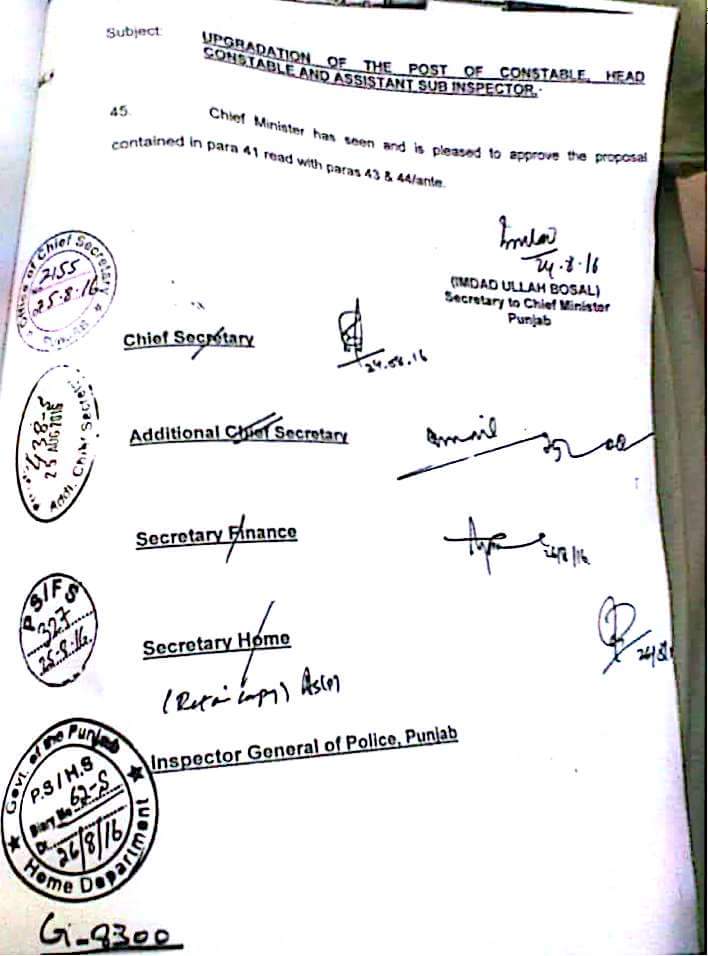 Subject: UPGRADATION OF THE POST OF CONSTABLE, HEAD
CONSTABLE AND ASSISTANT SUB INSPECTOR.-
45. Chief Minister has seen and is pleased to approve the proposal
contained in para 41 read with paras 43 & 44/ante.
24.8.16
(IMDAD ULLAH BOSAL)
Secretary to Chief Minister
Punjab
Office of Chief Secretary
2155
25.8.16
Chief Secretary
24.08.16
438-S
25 AUG 2016
Addl. Chief Secretary
Additional Chief Secretary
Secretary Finance
26/8/16
PS/FS
327
25.8.16
Secretary Home
26/8/
(Retain copy)
Inspector General of Police, Punjab
Govt. of the Punjab
P.S/H.S
Diary No 62-S
Dt. 26/8/16
Home Department
G-8300